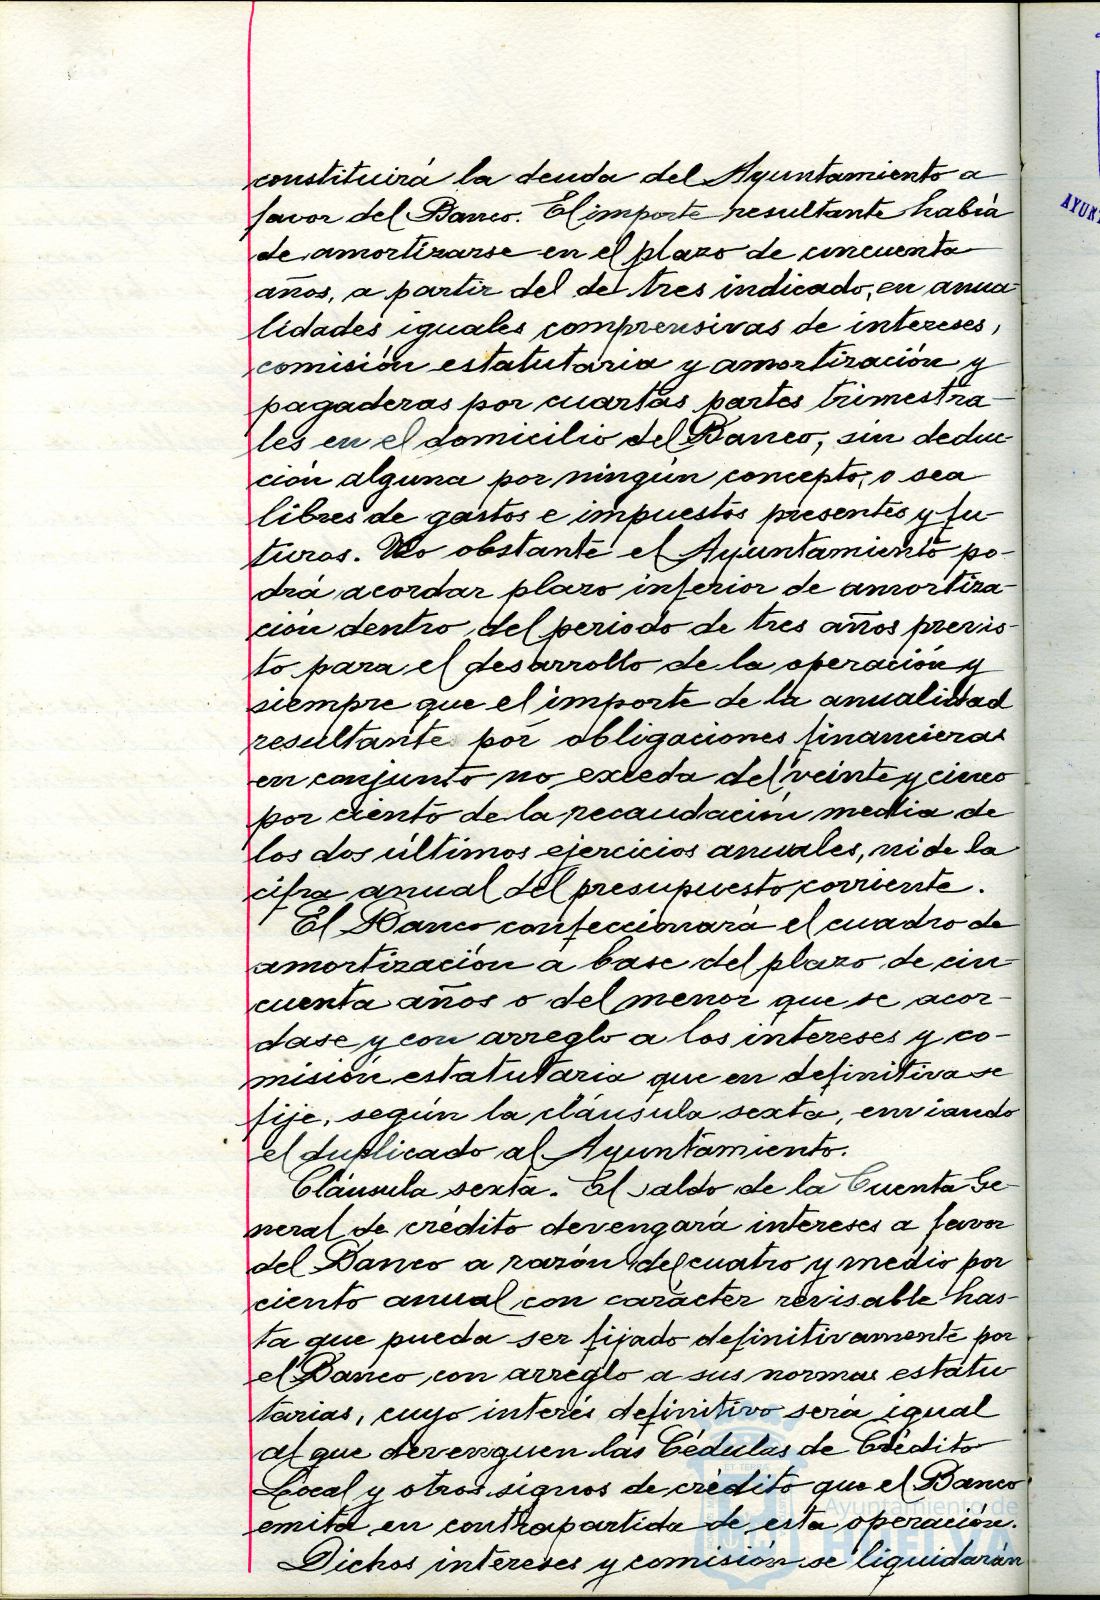 constituirá la deuda del Ayuntamiento a
favor del Banco. El importe resultante habrá
de amortizarse en el plazo de cincuenta
años, a partir del de tres indicado, en anua
lidades iguales comprensivas de intereses,
comisión estatutaria y amortización y
pagaderas por cuartas partes trimestra-
les en el domicilio del Banco, sin deduc-
ción alguna por ningún concepto, o sea
libres de gastos e impuestos presentes y fu-
turos. No obstante el Ayuntamiento po-
drá acordar plazo inferior de amortiza-
ción dentro del periodo de tres años previs-
to para el desarrollo de la operación y
siempre que el importe de la anualidad
resultante por obligaciones financieras
en conjunto no exceda del veinte y cinco
por ciento de la recaudación media de
los dos últimos ejercicios anuales, ni de la
cifra anual del presupuesto corriente.
El Banco confeccionará el cuadro de
amortización a base del plazo de cin-
cuenta años o del menor que se acor-
dase y con arreglo a los intereses y co-
misión estatutaria que en definitiva se
fije, según la cláusula sexta, enviando
el duplicado al Ayuntamiento.
Cláusula sexta. El saldo de la Cuenta Ge-
neral de crédito devengará intereses a favor
del Banco a razón del cuatro y medio por
ciento anual con carácter revisable has-
ta que pueda ser fijado definitivamente por
el Banco con arreglo a sus normas estatu
tarias, cuyo interés definitivo será igual
al que devenguen las Cédulas de Crédito
Local y otros signos de crédito que el Banco
emita en contrapartida de esta operación.
Dichos intereses y comisión se liquidarán
Ayuntamiento de
HUELVA
AYUNT